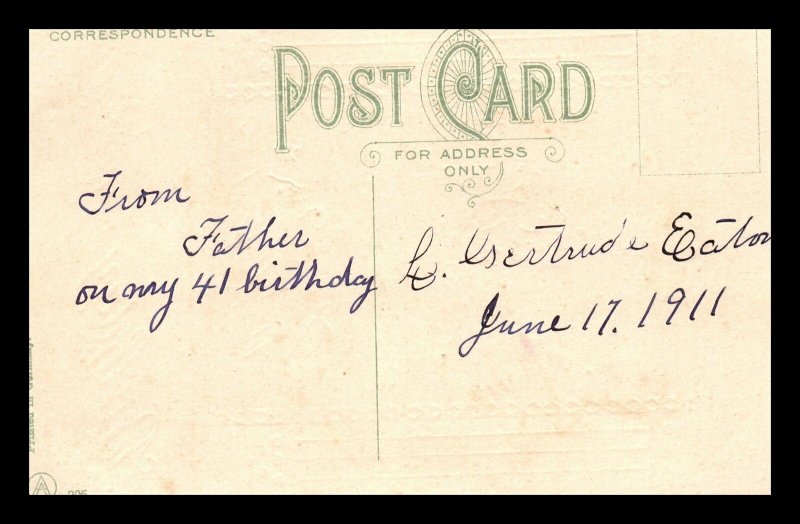 CORRESPONDENCE
POST CARD
FOR ADDRESS
ONLY
From
Father
on my 41 birthday
L. Gertrude Eaton
June 17. 1911
Printed in Germany.
A